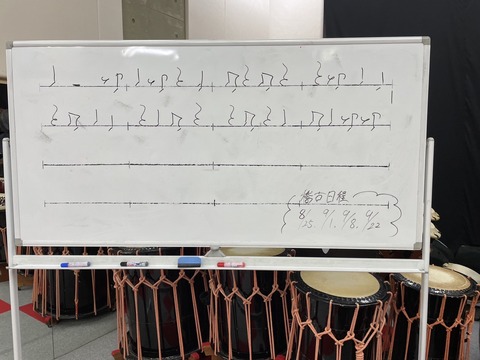 稽古日程
8/25. 9/1. 9/8. 9/22